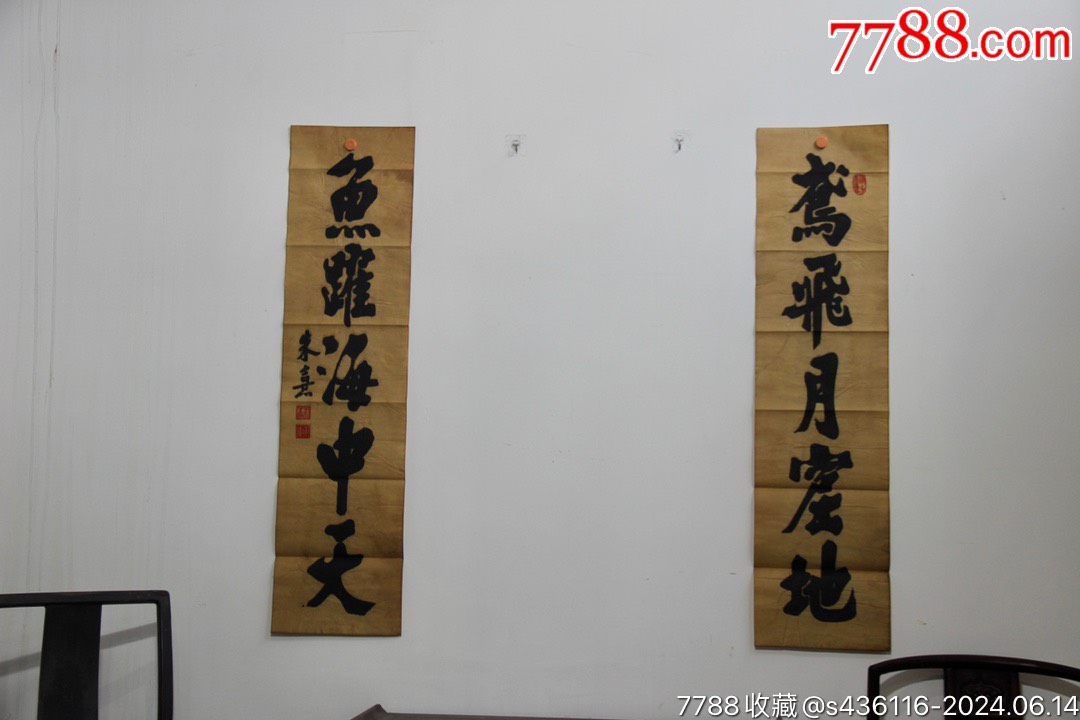 7788.com
鳶飛月窟地
魚躍海中天
朱熹
7788收藏@s436116-2024.06.14